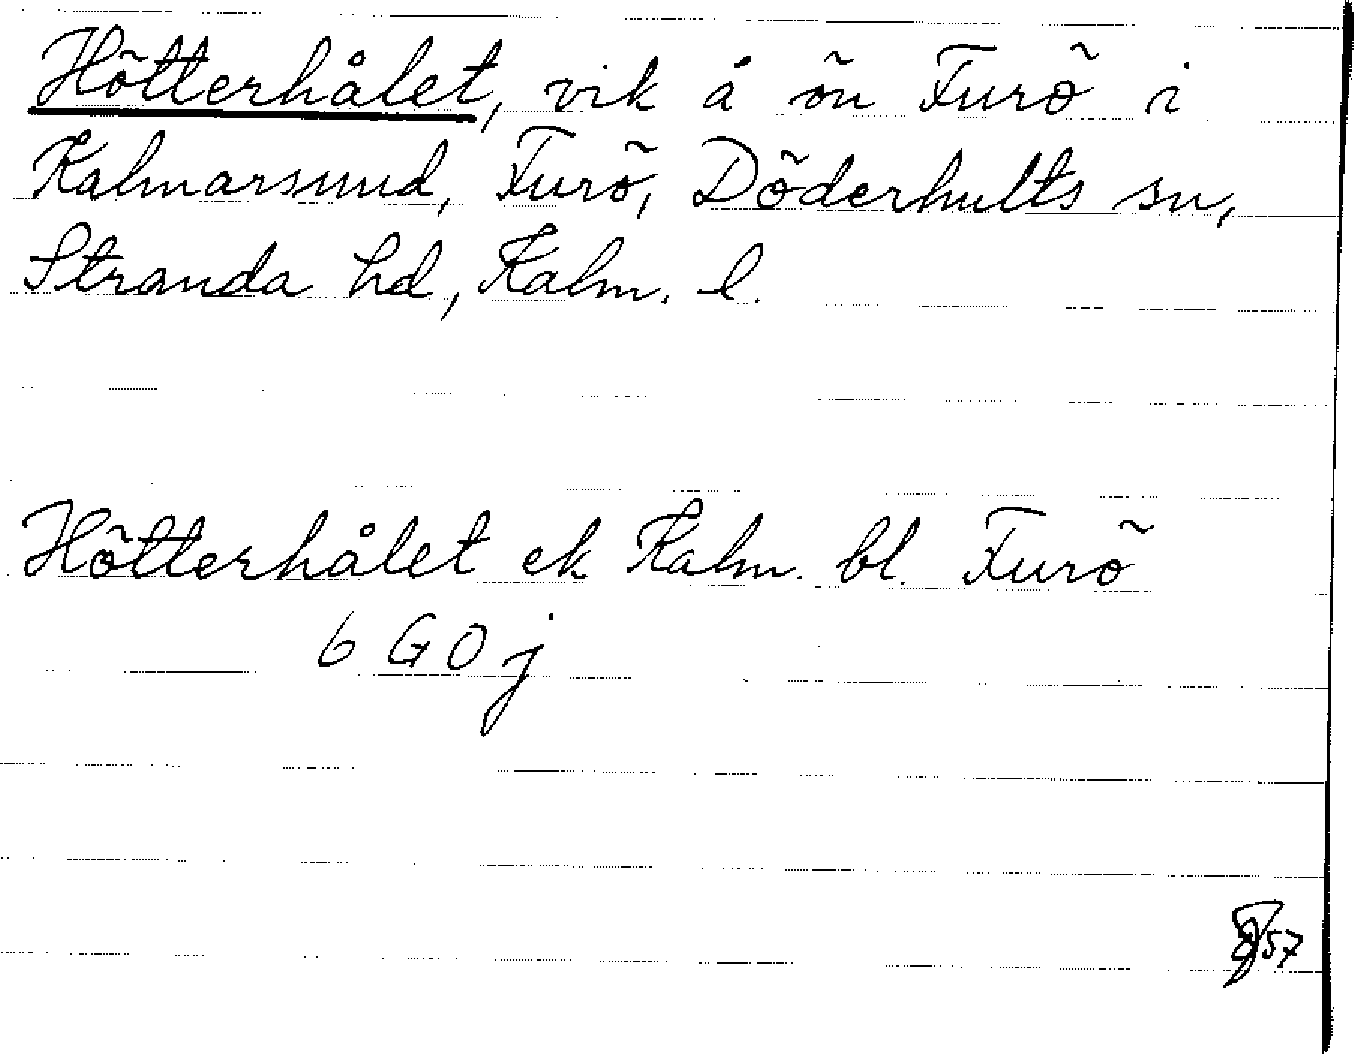 Hötterhålet, vik å ön Furö i
Kalmarsund, Furö, Döderhults sn,
Stranda hd, Kalm. l.
Hötterhålet ek Kalm. bl. Furö
6 G O j
57